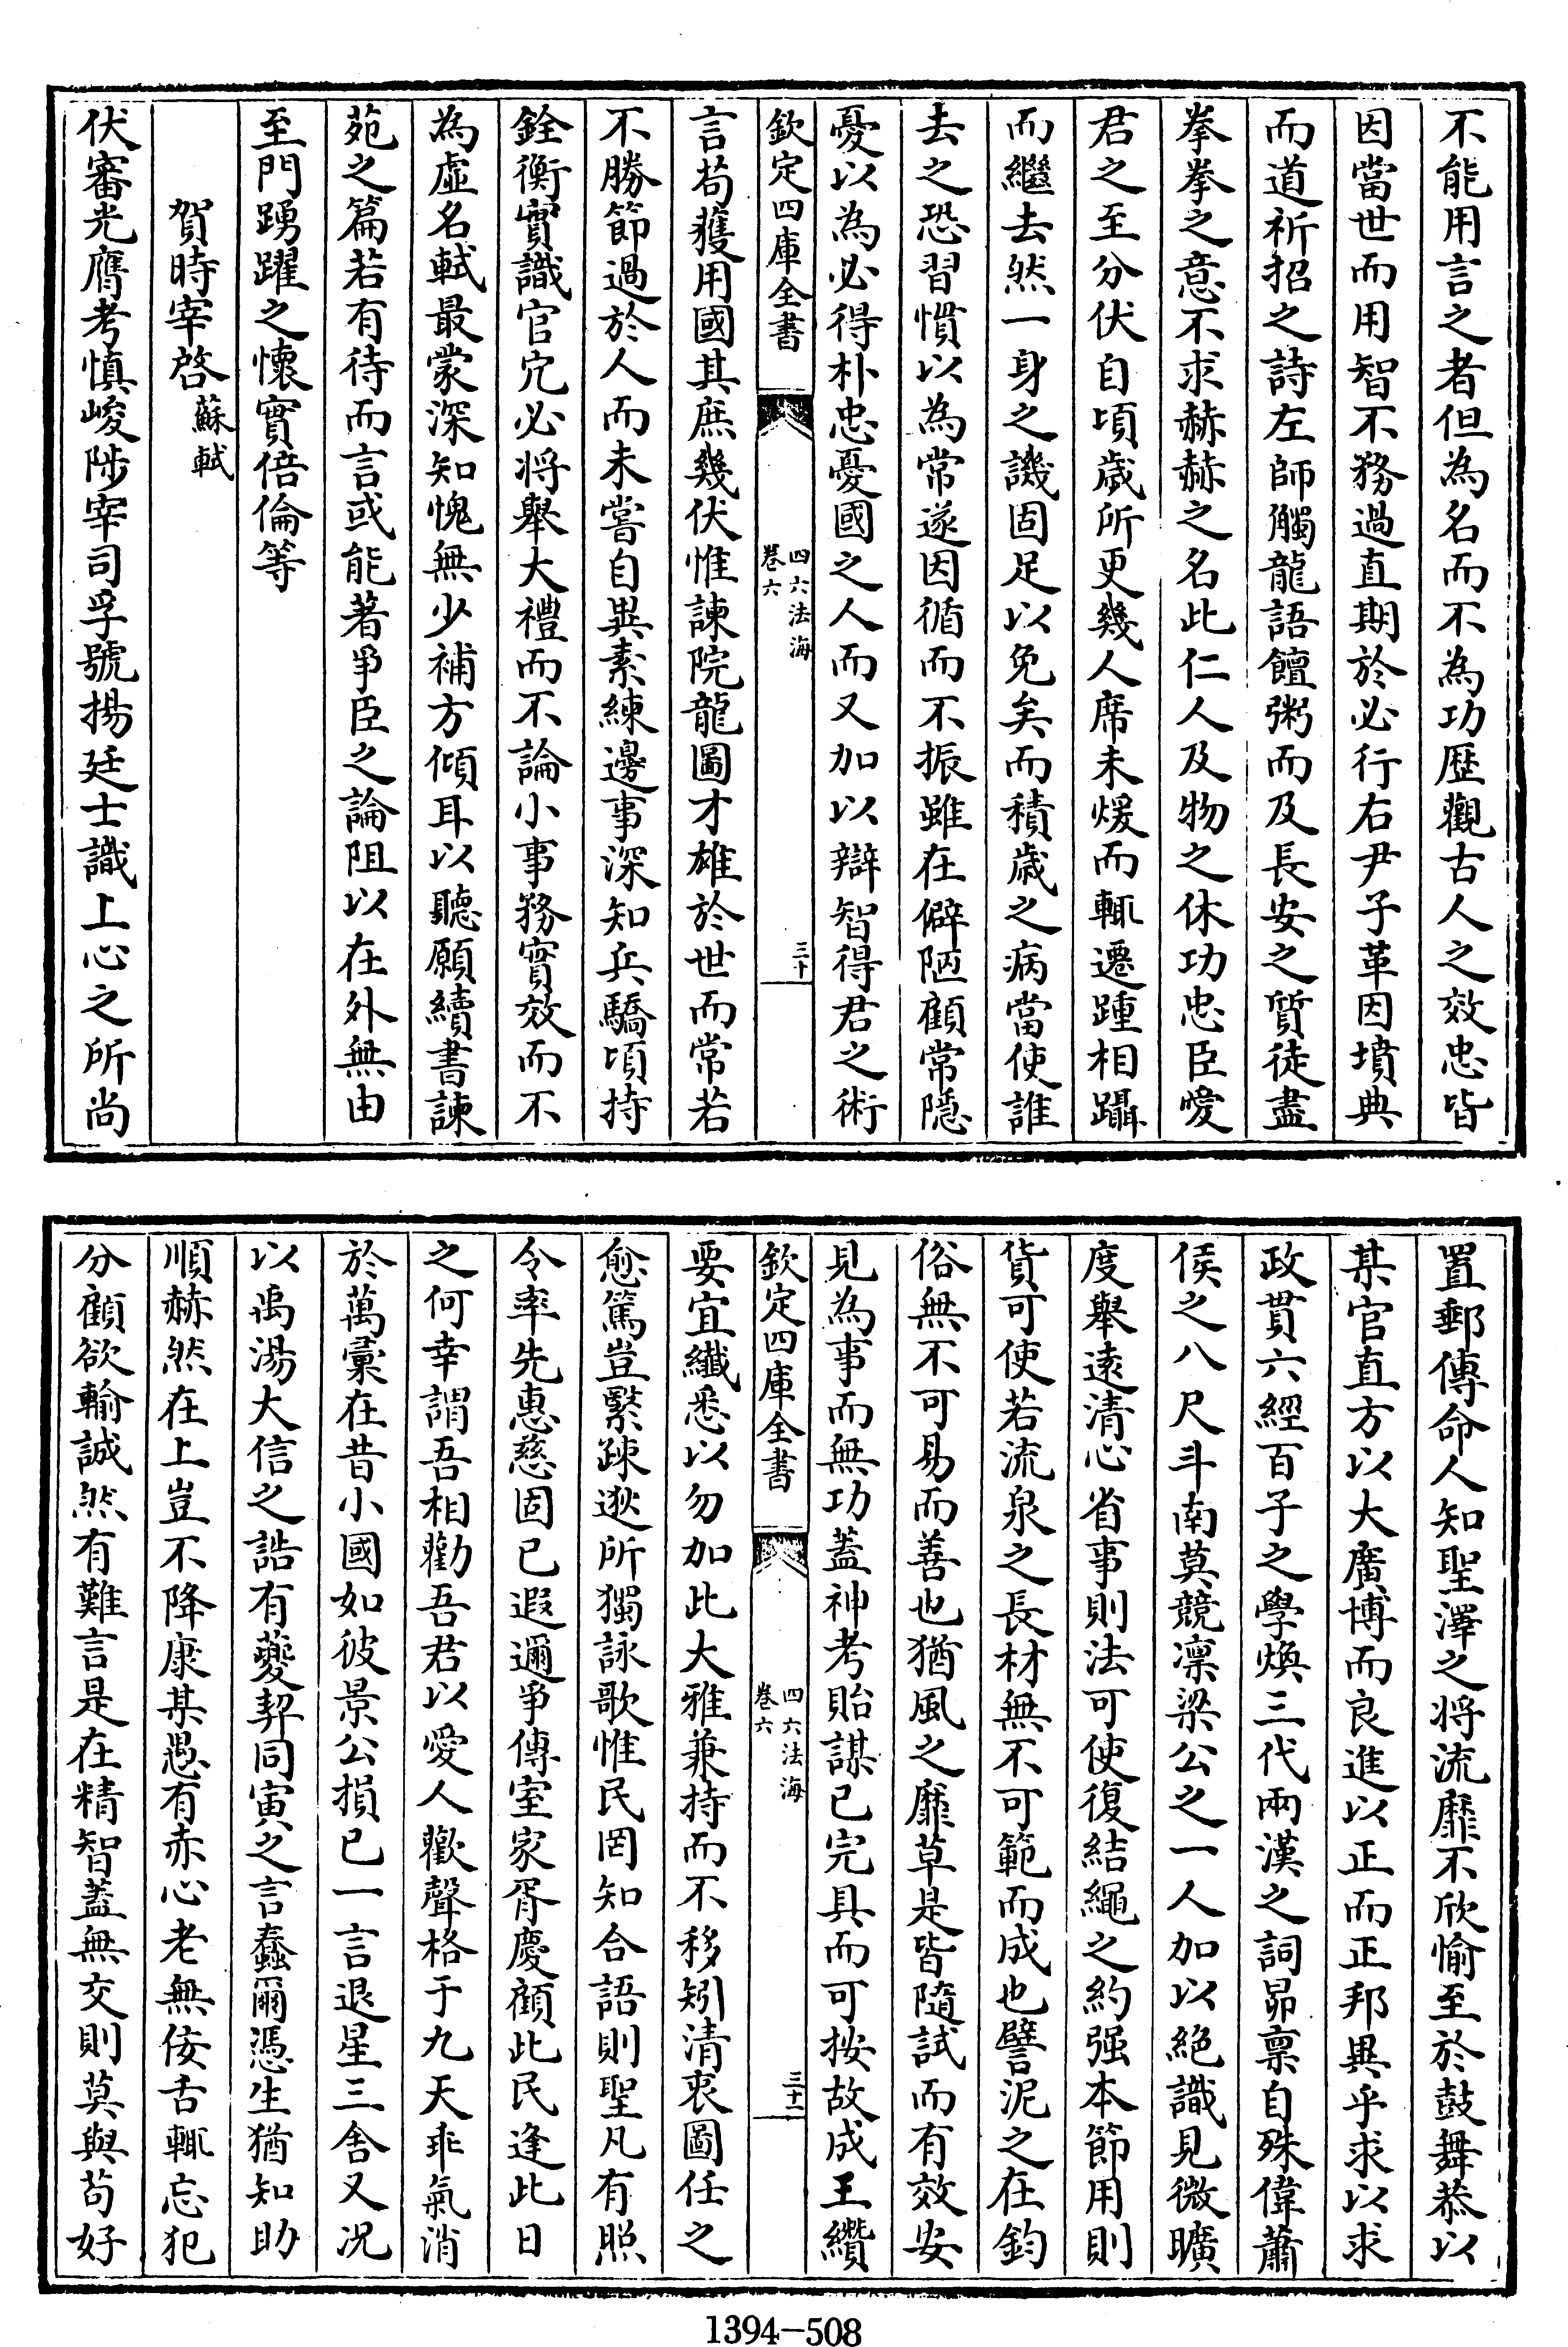 不能用言之者但為名而不為功歴觀古人之效忠皆
因當世而用智不務過直期於必行右尹子革因墳典
而道祈招之詩左師觸龍語饘粥而及長安之質徒盡
拳拳之意不求赫赫之名此仁人及物之休功忠臣愛
君之至分伏自頃歲所更幾人席未煖而輒遷踵相躡
而繼去然一身之譏固足以免矣而積歲之病當使誰
去之恐習慣以為常遂因循而不振雖在僻陋顧常隱
憂以為必得朴忠憂國之人而又加以辯智得君之術
欽定四庫全書
四六法海
卷六
三十
言苟獲用國其庶幾伏惟諫院龍圖才雄於世而常若
不勝節過於人而未嘗自異素練邊事深知兵驕頃持
銓衡實識官宂必將舉大禮而不論小事務實效而不
為虛名軾最蒙深知愧無少補方傾耳以聽願續書諫
苑之篇若有待而言或能著爭臣之論阻以在外無由
至門踴躍之懷實倍倫等
賀時宰啓 蘇軾
伏審光膺考慎峻陟宰司孚號揚廷士識上心之所尚
置郵傳命人知聖澤之将流靡不欣愉至於鼓舞恭以
某官直方以大廣博而良進以正而正邦異乎求以求
政貫六經百子之學煥三代兩漢之詞昴禀自殊偉蕭
侯之八尺斗南莫競凛梁公之一人加以絶識見微曠
度舉遠清心省事則法可使復結繩之約强本節用則
貨可使若流泉之長材無不可範而成也譬泥之在鈞
俗無不可易而善也猶風之靡草是皆隨試而有效安
見為事而無功蓋神考貽謀已完具而可按故成王纘
欽定四庫全書
四六法海
卷六
三十一
要宜纖悉以勿加此大雅兼持而不移矧清衷圖任之
愈篤豈繄疎逖所獨詠歌惟民罔知合語則聖凡有照
令率先惠慈固已遐邇爭傳室家胥慶顧此民逢此日
之何幸謂吾相勸吾君以愛人歡聲格于九天乖氣消
於萬彚在昔小國如彼景公損已一言退星三舍又况
以禹湯大信之誥有夔契同寅之言蠢爾憑生猶知助
順赫然在上豈不降康某愚有赤心老無佞舌輒忘犯
分顧欲輸誠然有難言是在精智蓋無交則莫與苟好
1394-508